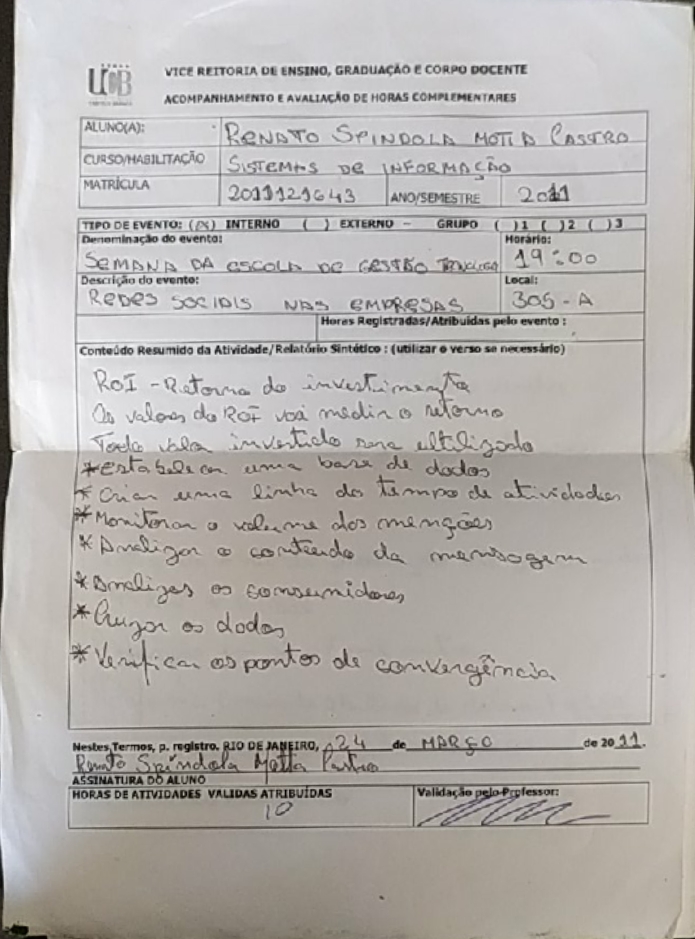 UCB
VICE REITORIA DE ENSINO, GRADUAÇÃO E CORPO DOCENTE
ACOMPANHAMENTO E AVALIAÇÃO DE HORAS COMPLEMENTARES
ALUNO(A): RENATO SPINDOLA MOTTA CASTRO
CURSO/HABILITAÇÃO SISTEMAS DE INFORMAÇÃO
MATRÍCULA 2011121643 ANO/SEMESTRE 2011
TIPO DE EVENTO: (X) INTERNO ( ) EXTERNO - GRUPO ( )1 ( )2 ( )3
Denominação do evento: Horário:
SEMANA DA ESCOLA DE GESTÃO 19:00
Descrição do evento: Local:
REDES SOCIAIS NAS EMPRESAS 305-A
Horas Registradas/Atribuídas pelo evento :
Conteúdo Resumido da Atividade/Relatório Sintético : (utilizar o verso se necessário)
ROI - Retorno do investimento
Os valores do ROI vai medir o retorno
Todo valor investido sera ultilizado
*Estabelecer uma base de dados
*Criar uma linha do tempo de atividades
*Monitorar o volume das menções
*Analizar o conteudo da mensagem
*Analizar os consumidores
*Cruzar os dados
*Verificar os pontos de convergência
Nestes Termos, p. registro. RIO DE JANEIRO, 24 de MARÇO de 2011.
Renato Spindola Motta Castro
ASSINATURA DO ALUNO
HORAS DE ATIVIDADES VALIDAS ATRIBUÍDAS Validação pelo Professor:
10